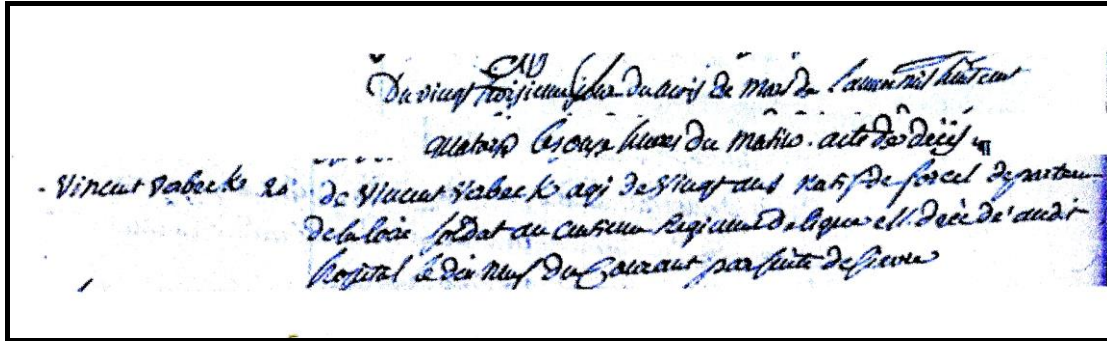 Du vingt troisieme jour du mois de Mars de l'annee mil huit cent
quatorze les onze heures du matin. acte de décès
Vincent Vabeck 20 de Vincent Vabeck agé de Vingt ans natif de departem
de la loire soldat au centieme Regiment de ligne est décédé audit
hopital le dix neuf du Courant par suite de fievre